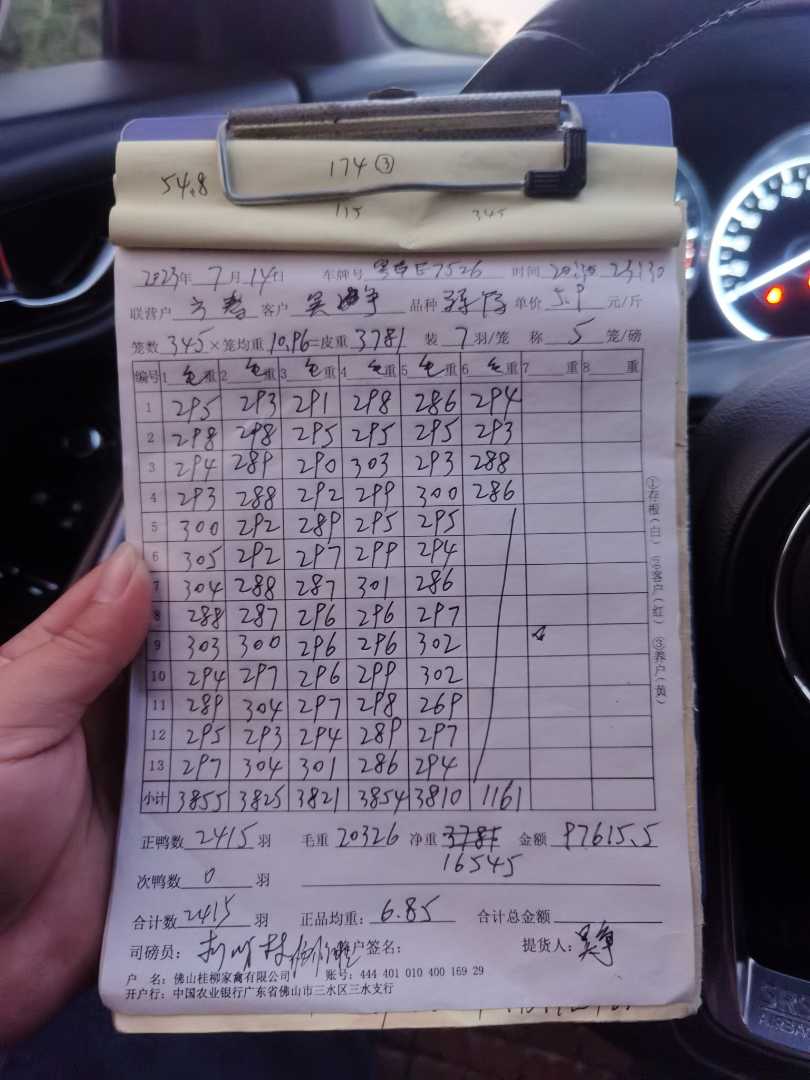 54.8 174③
115 345
2023年 7月 14日 车牌号 E7526 时间 20:30 23:30
联营户 客户 吴 品种 单价 5.9 元/斤
笼数 345 ×笼均重 10.96 =皮重 3781 装 7 羽/笼 称 5 笼/磅
编号 1 毛重 2 毛重 3 毛重 4 毛重 5 毛重 6 毛重 7 重 8 重
1 295 293 291 298 286 294
2 298 298 295 295 295 293
3 294 289 290 303 293 288
4 293 288 292 299 300 286
5 300 292 289 295 295
6 305 292 297 299 294
7 304 288 287 301 286
8 288 287 296 296 297
9 303 300 296 296 302
10 294 297 296 299 302
11 289 304 297 298 269
12 295 293 294 289 297
13 297 304 301 286 294
小计 3855 3825 3821 3854 3810 1161
正鸭数 2415 羽 毛重 20326 净重 3781 金额 97615.5
16545
次鸭数 0 羽
合计数 2415 羽 正品均重: 6.85 合计总金额
司磅员: 户签名: 提货人:
户 名: 佛山桂柳家禽有限公司 账号: 444 401 010 400 169 29
开户行: 中国农业银行广东省佛山市三水区三水支行
①存根(白) ②客户(红) ③养户(黄)